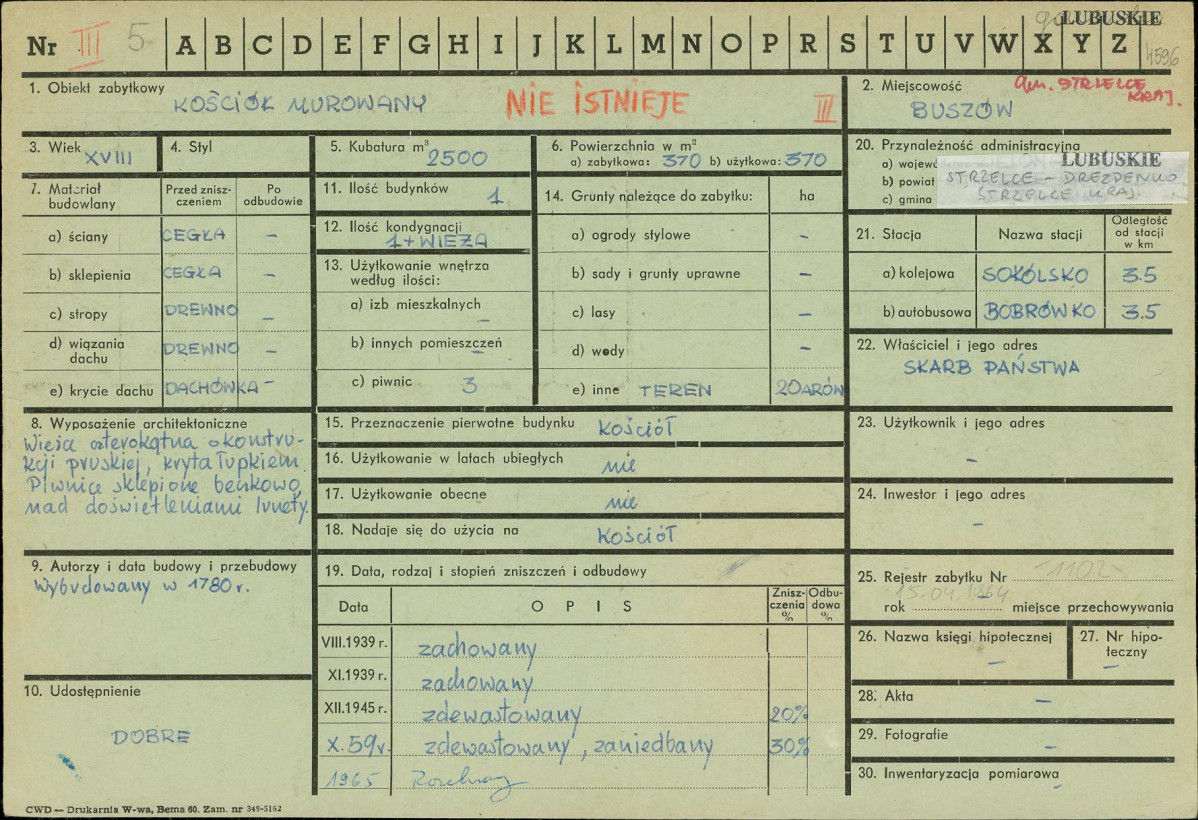 Nr III 5 A B C D E F G H I J K L M N O P R S T U V W X Y Z
LUBUSKIE
4596
1. Obiekt zabytkowy
KOŚCIÓŁ MUROWANY NIE ISTNIEJE III
2. Miejscowość gm. STRZELCE KRAJ.
BUSZÓW
3. Wiek XVIII
4. Styl
5. Kubatura m³ 2500
6. Powierzchnia w m²
a) zabytkowa: 370 b) użytkowa: 370
20. Przynależność administracyjna
a) wojew LUBUSKIE
b) powiat STRZELCE - DREZDENKO
c) gmina STRZELCE KRAJ.
7. Materiał budowlany
Przed zniszczeniem
Po odbudowie
a) ściany CEGŁA –
b) sklepienia CEGŁA –
c) stropy DREWNO –
d) wiązania dachu DREWNO –
e) krycie dachu DACHÓWKA –
11. Ilość budynków 1
12. Ilość kondygnacji
1 + WIEŻA
13. Użytkowanie wnętrza według ilości:
a) izb mieszkalnych –
b) innych pomieszczeń –
c) piwnic 3
14. Grunty należące do zabytku: ha
a) ogrody stylowe –
b) sady i grunty uprawne –
c) lasy –
d) wody –
e) inne TEREN 20 ARÓW
21. Stacja Nazwa stacji Odległość od stacji w km
a) kolejowa SOKÓLSKO 3.5
b) autobusowa BOBRÓWKO 3.5
22. Właściciel i jego adres
SKARB PAŃSTWA
8. Wyposażenie architektoniczne
Wieża czterokątna o konstru-
kcji pruskiej, kryta łupkiem.
Piwnice sklepione beczkowo,
nad doświetleniami lunety.
15. Przeznaczenie pierwotne budynku kościół
16. Użytkowanie w latach ubiegłych nie
17. Użytkowanie obecne nie
18. Nadaje się do użycia na kościół
23. Użytkownik i jego adres
–
24. Inwestor i jego adres
–
9. Autorzy i data budowy i przebudowy
Wybudowany w 1780 r.
10. Udostępnienie
DOBRE
19. Data, rodzaj i stopień zniszczeń i odbudowy
Data OPIS Zniszczenia % Odbudowa %
VIII.1939 r. zachowany
XI.1939 r. zachowany
XII.1945 r. zdewastowany 20%
X.59r. zdewastowany, zaniedbany 30%
1965
25. Rejestr zabytku Nr 1102
rok 15.04.1964 miejsce przechowywania
–
26. Nazwa księgi hipotecznej
–
27. Nr hipoteczny
–
28. Akta –
29. Fotografie
–
30. Inwentaryzacja pomiarowa
–
CWD — Drukarnia W-wa, Bema 60. Zam. nr 349-5162